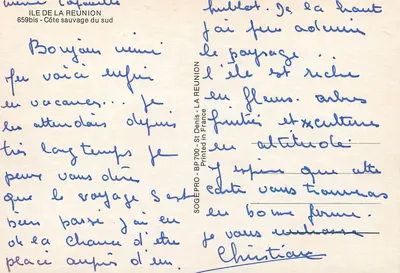 ILE DE LA REUNION
659bis - Côte sauvage du sud
Bonjour mimi
me voici enfin
en vacances... je
les attendais depuis
très longtemps je
peux vous dire
que le voyage s'est
bien passé. j'ai eu
de la chance d'être
placé auprès d'un
hublot. de la haut
j'ai pu admirer
le paysage...
l'île est riche
en fleurs. arbres
fruitiers et culture
en altitude
j'espère que cette
carte vous trouvera
en bonne forme.
je vous embrasse
Christiane
SOGEPRO - BP 700 - St Denis - LA REUNION
Printed in France